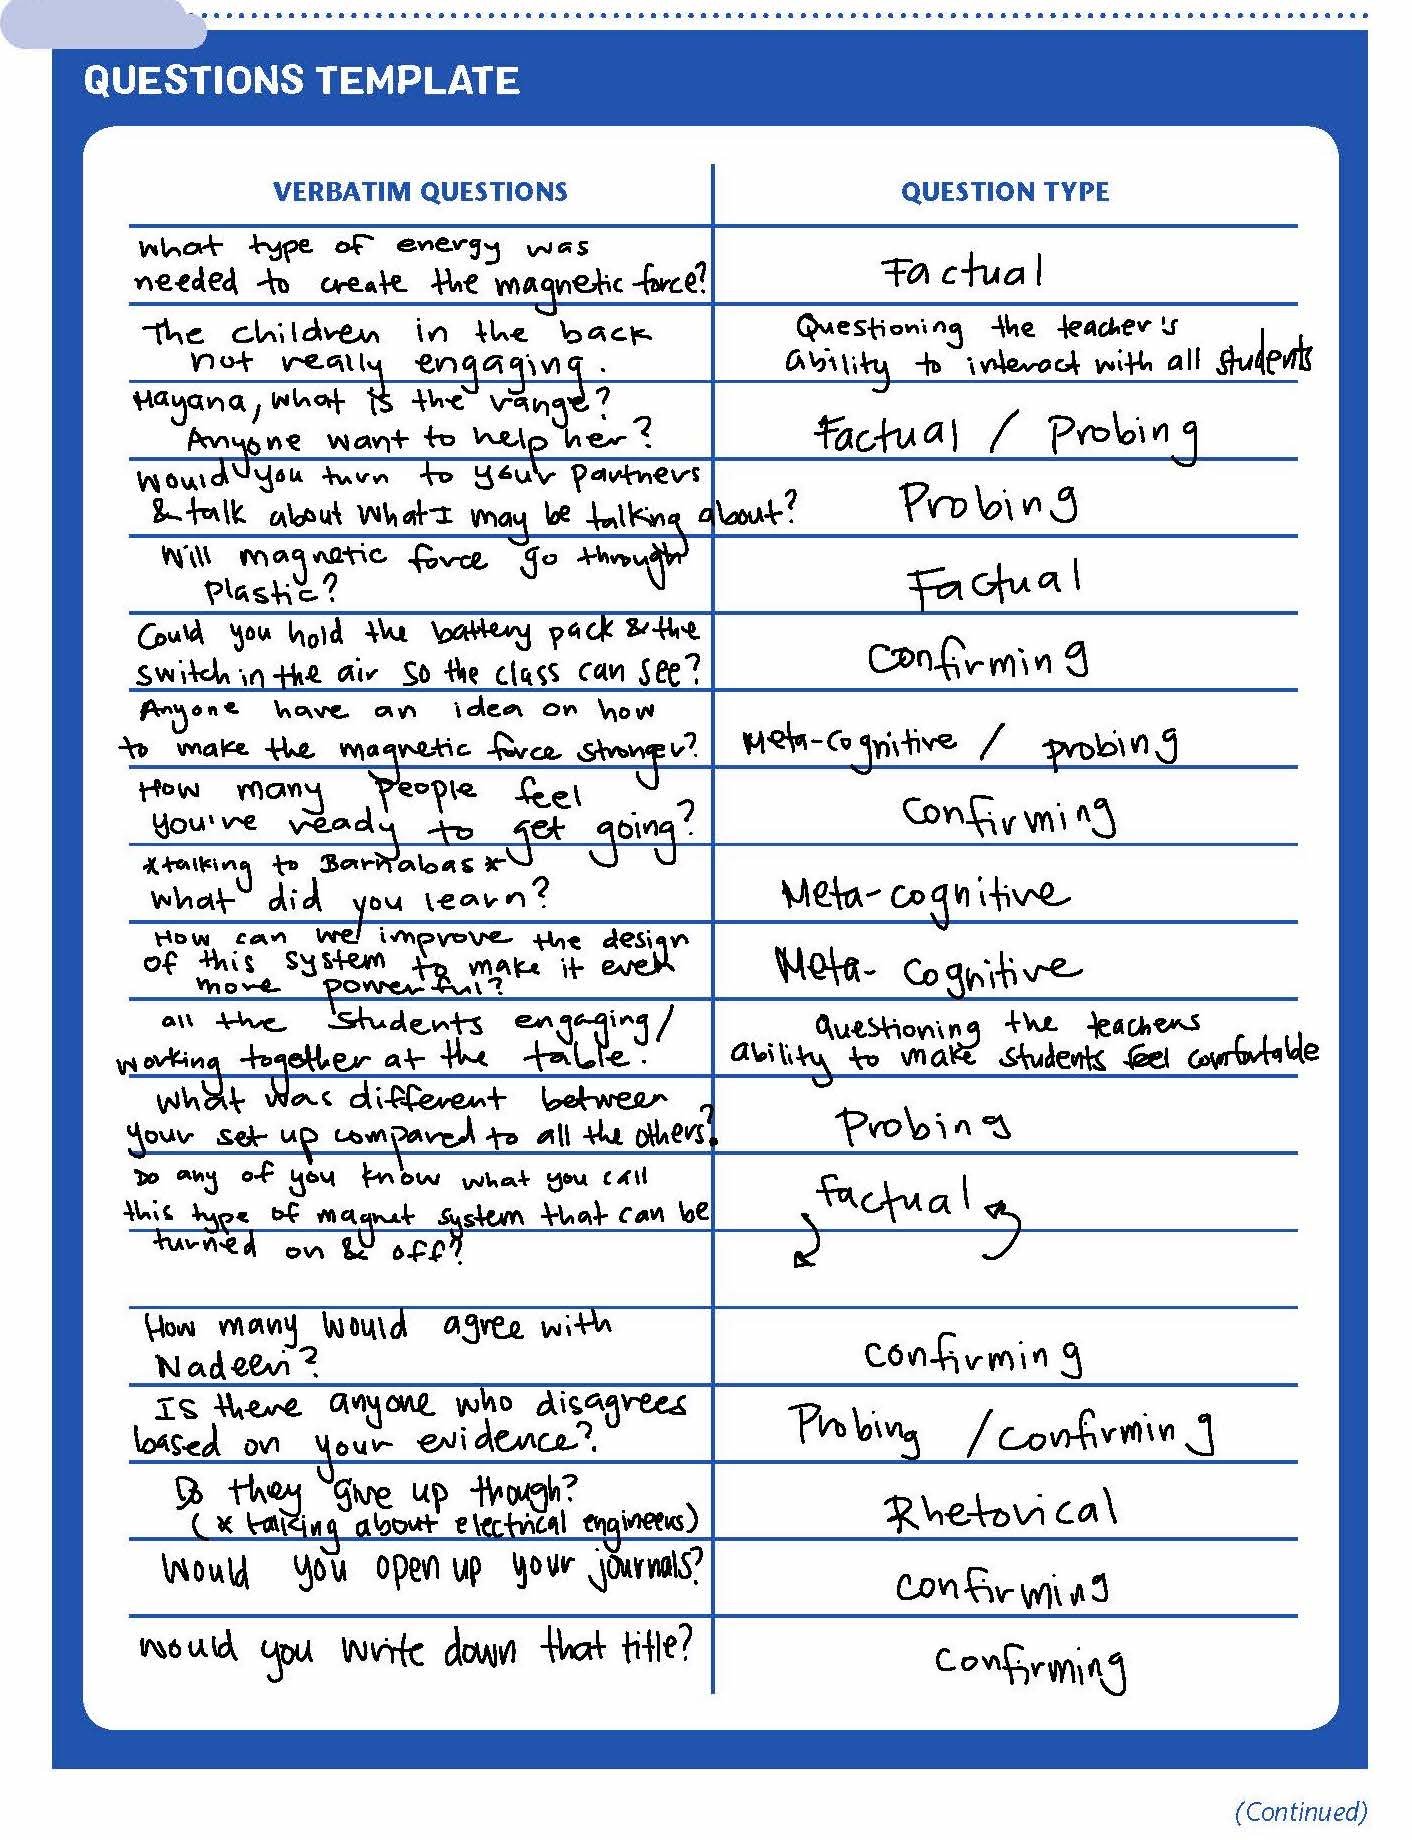 QUESTIONS TEMPLATE
VERBATIM QUESTIONS
QUESTION TYPE
What type of energy was
needed to create the magnetic force?
Factual
The children in the back
not really engaging.
Questioning the teacher's
ability to interact with all students
Hayana, what is the range?
Anyone want to help her?
Factual / Probing
Would you turn to your partners
& talk about what I may be talking about?
Probing
Will magnetic force go through
plastic?
Factual
Could you hold the battery pack & the
switch in the air so the class can see?
Confirming
Anyone have an idea on how
to make the magnetic force stronger?
Meta-cognitive / probing
How many people feel
you're ready to get going?
Confirming
*talking to Barnabas*
What did you learn?
Meta-cognitive
How can we improve the design
of this system to make it even
more powerful?
Meta-Cognitive
all the students engaging/
working together at the table.
questioning the teachers
ability to make students feel comfortable
What was different between
your set up compared to all the others?
Probing
Do any of you know what you call
this type of magnet system that can be
turned on & off?
factual
How many would agree with
Nadeen?
confirming
Is there anyone who disagrees
based on your evidence?
Probing / confirming
Do they give up though?
(* talking about electrical engineers)
Rhetorical
Would you open up your journals?
confirming
would you write down that title?
confirming
(Continued)